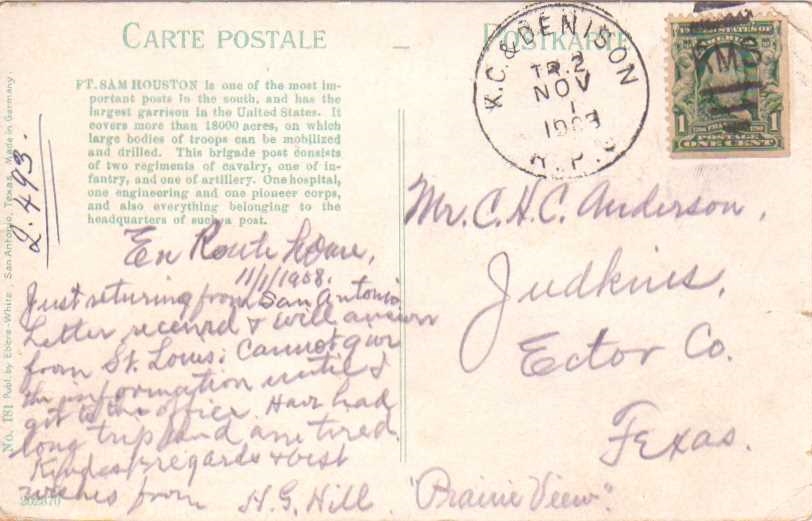 CARTE POSTALE — POSTKARTE
FT. SAM HOUSTON is one of the most im-
portant posts in the south, and has the
largest garrison in the United States. It
covers more than 18000 acres, on which
large bodies of troops can be mobilized
and drilled. This brigade post consists
of two regiments of cavalry, one of in-
fantry, and one of artillery. One hospital,
one engineering and one pioneer corps,
and also everything belonging to the
headquarters of such a post.
No. 181 Publ. by Ebers-White, San Antonio, Texas. Made in Germany.
2.493.
En Route home,
11/1/1908.
Just returing from San Antonio
Letter received & will answer
from St. Louis. Cannot give
the information until I
get to the office. Have had
long trip and am tired.
Kindest regards & best
wishes from H. G. Hill.
"Prairie View".
K.C. & DENISON
TR.2
NOV
1
R.P.O
RMS
UNITED STATES OF
AMERICA
1 POSTAGE 1
ONE CENT
Mr. C. H. C. Anderson,
Judkins,
Ector Co.
Texas.